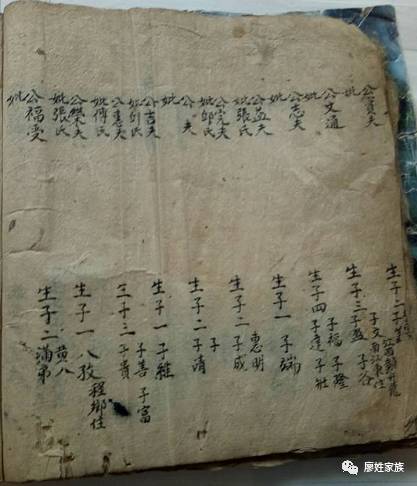 公貢夫
妣
公文通
妣
公志夫
妣
公孟夫
妣張氏
公完夫
妣邱氏
公 夫
妣
公吉夫
妣刘氏
公惠夫
妣傅氏
公榮夫
妣張氏
公福受
妣
生子二
子文
生子三子盛 子谷
子福 子隆
生子四子達 子壯
生子一 子瑞
惠明
生子二子成
子
生子二子清
生子一子維
子善 子富
生子三子貴
程鄉住
生子一 八孜
黄八
生子二滿弟
廖姓家族